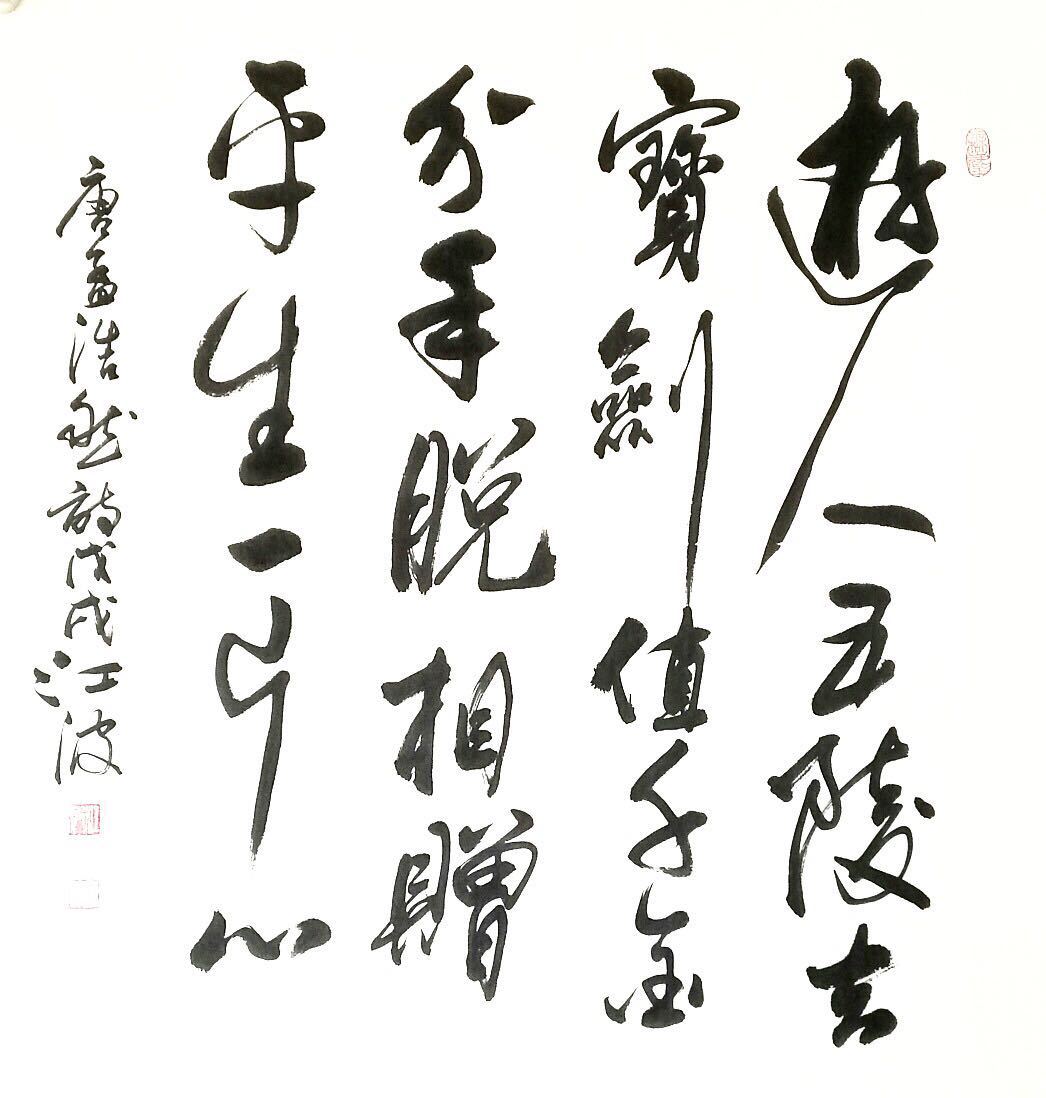 遊人五陵去
寶劍值千金
分手脱相贈
平生一片心
唐孟浩然詩戊戌江波